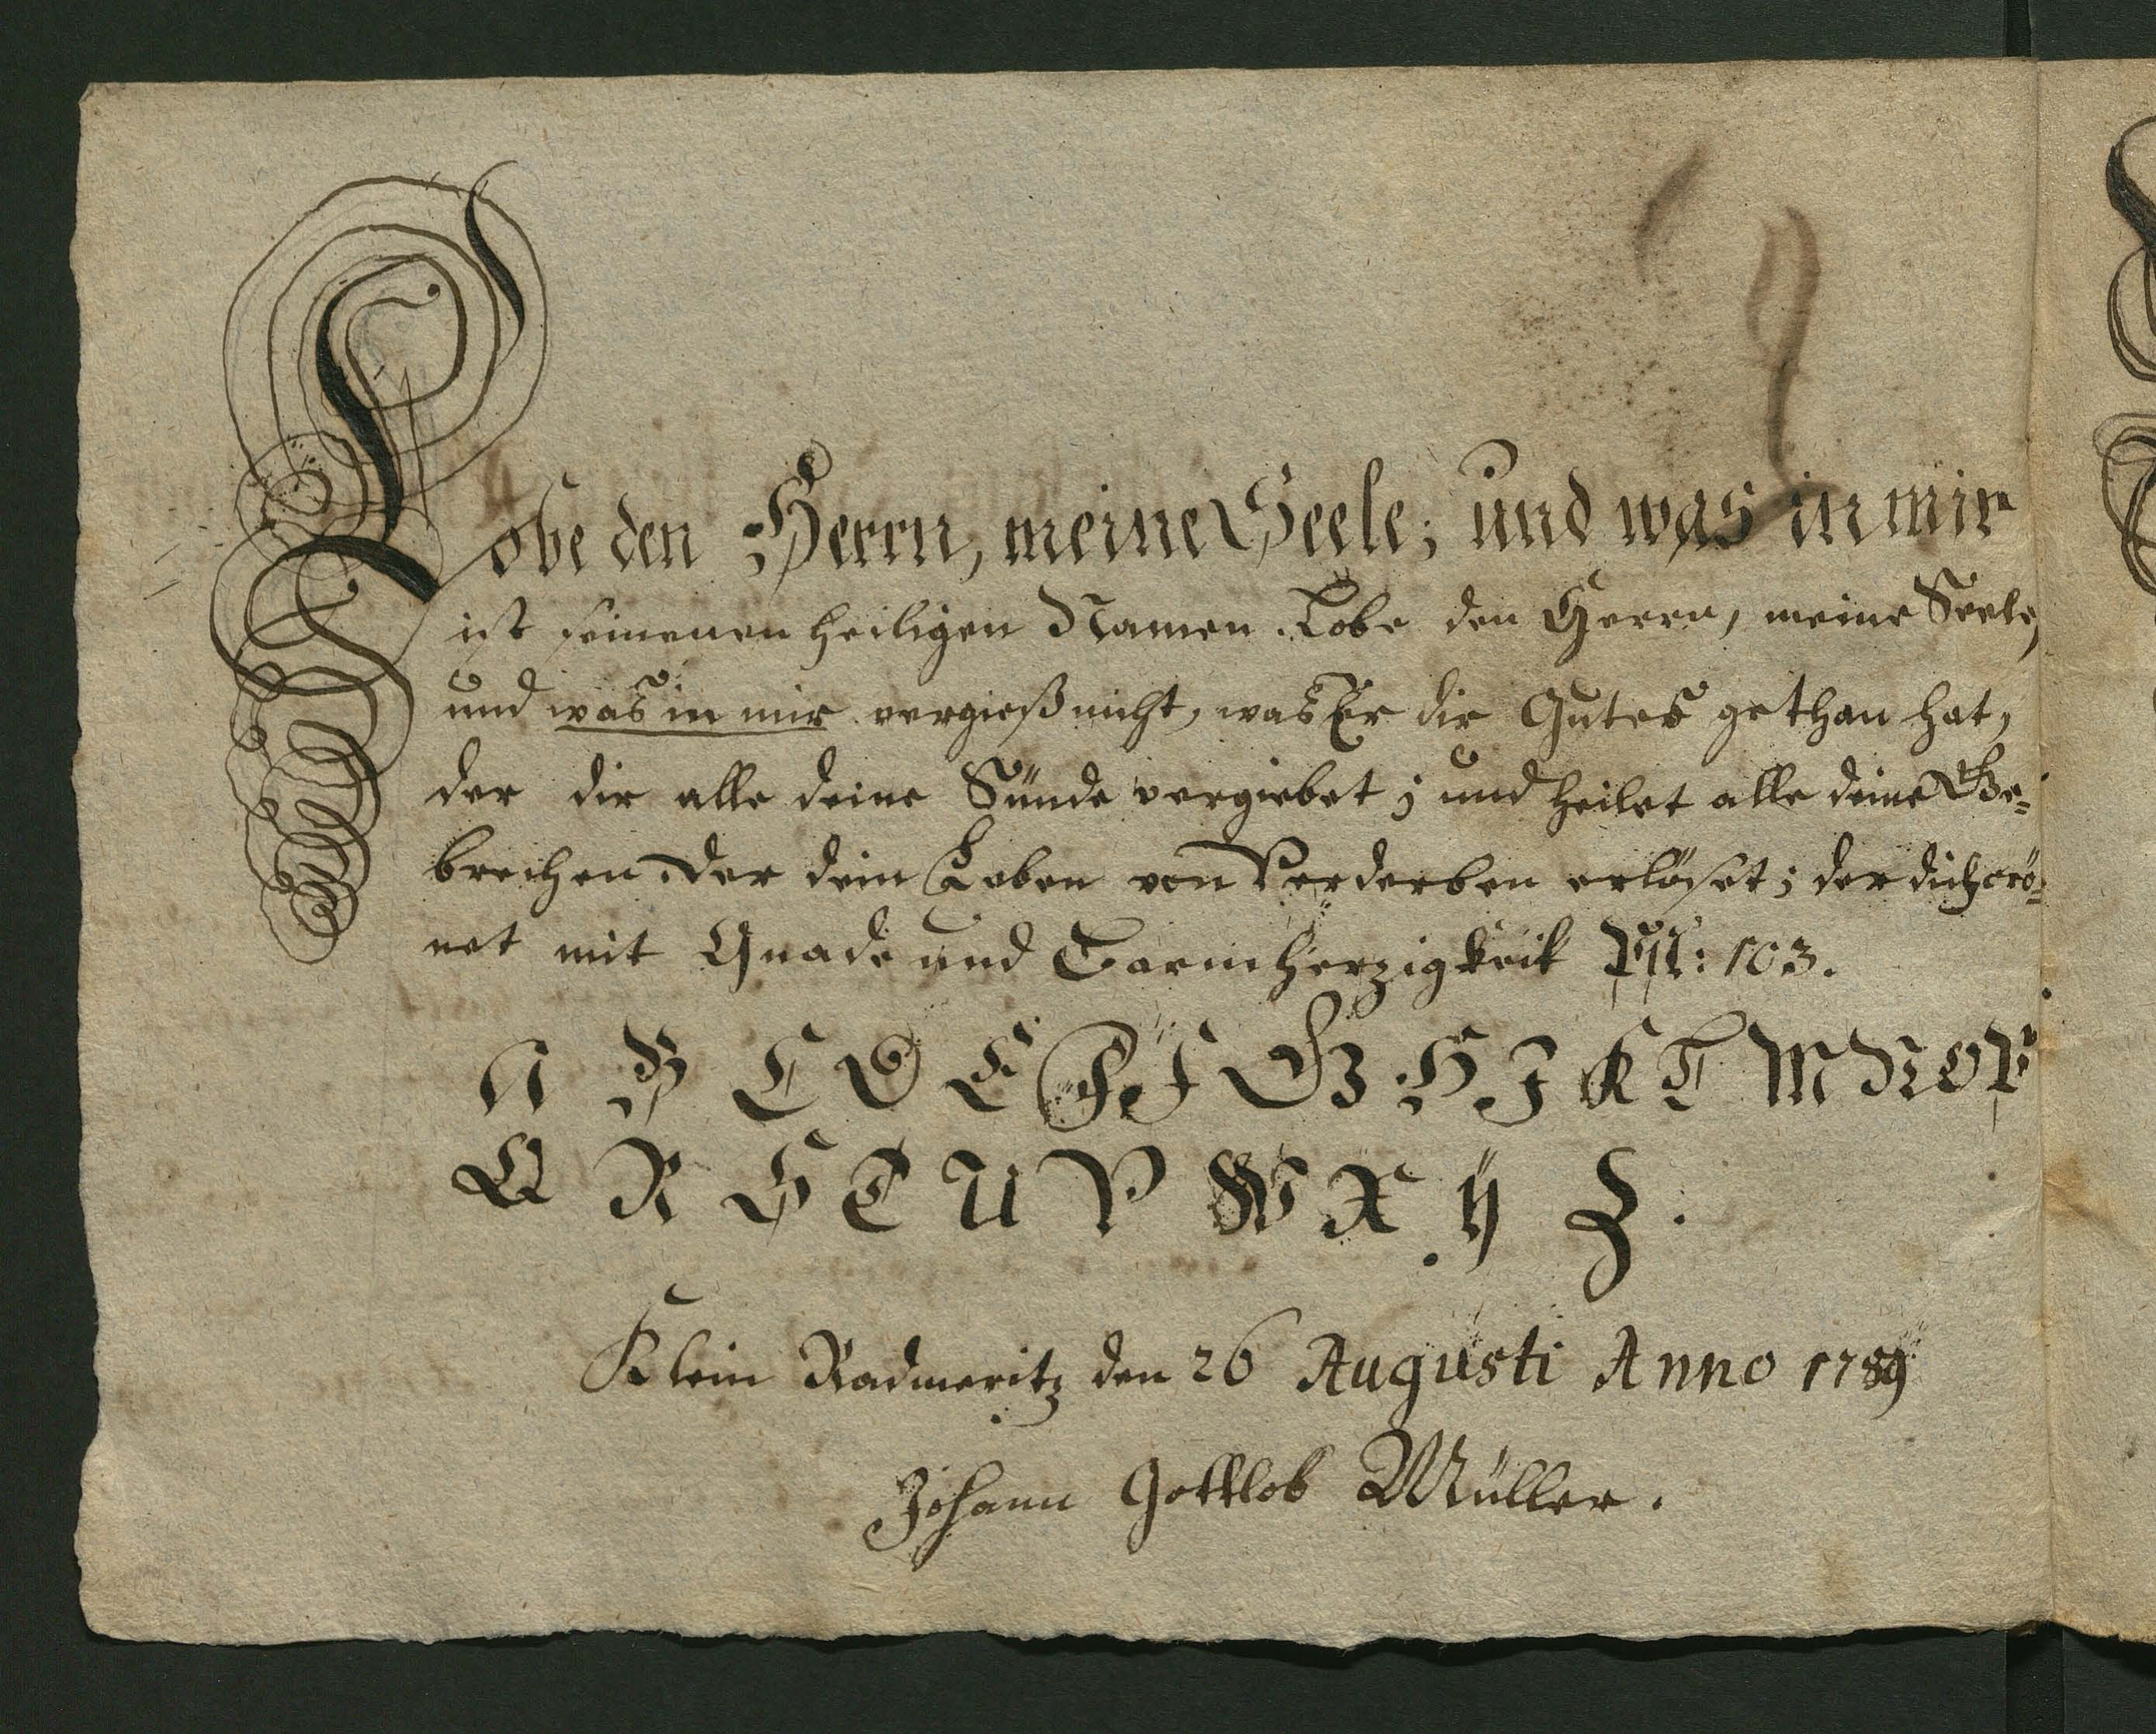 Lobe den Herrn, meine Seele; und was in mir
ist seinenen heiligen Namen. Lobe den Herrn, meine Seele,
und was in mir vergieß nicht, was Er dir Gutes gethan hat,
der dir alle deine Sünde vergiebet; und heilet alle deine Ge-
brechen. Der dein Leben von Verderben erlöset; der dich crö-
net mit Gnade und Barmherzigkeit Psl: 103.
A B C D E F f G H I K L M N O P
Q R S T U V W X Y Z.
Klein Radmeritz den 26 Augusti Anno 1789
Johann Gottlob Müller.